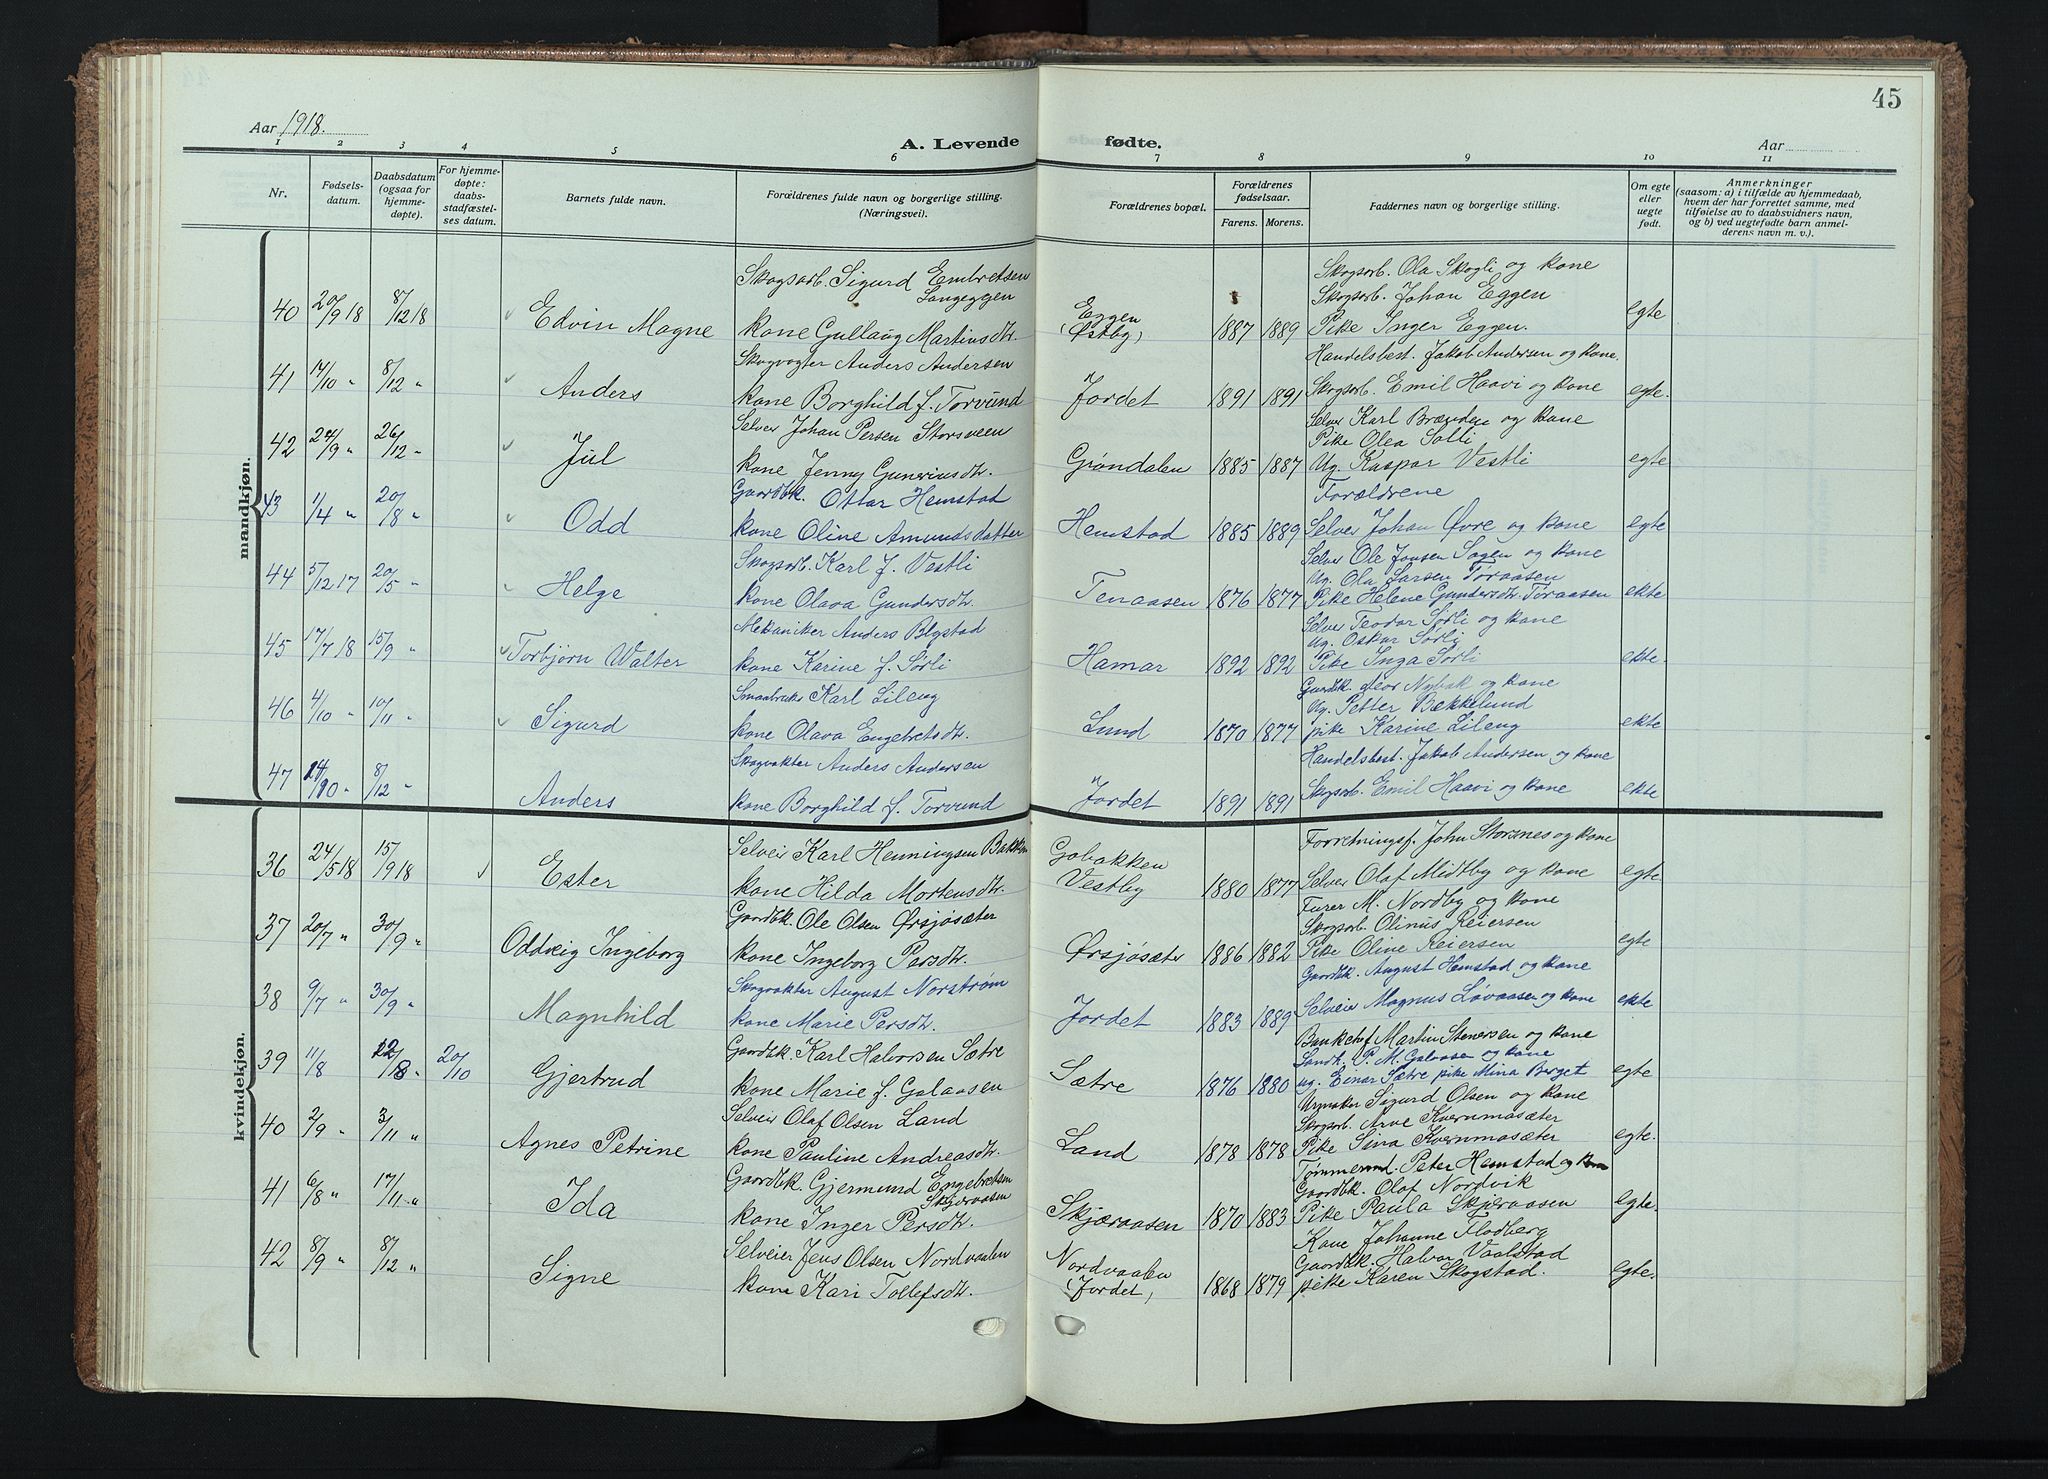 45
Aar 1918.
A. Levende fødte.
Aar
1 2 3 4 5 6 7 8 9 10 11
Nr.
Fødsels-
datum.
Daabsdatum
(ogsaa for
hjemme-
døpte).
For hjemme-
døpte:
daabs-
stadfæstel-
ses datum.
Barnets fulde navn.
Forældrenes fulde navn og borgerlige stilling.
(Næringsvei).
Forældrenes bopæl.
Forældrenes
fødselsaar.
Farens. Morens.
Faddernes navn og borgerlige stilling.
Om egte
eller
uegte
født.
Anmerkninger
(saasom: a) i tilfælde av hjemmedaab,
hvem der har forrettet samme, med
tilføielse av to daabsvidners navn,
og b) ved uegtefødte barn anmel-
derens navn m. v.).
mandkjøn.
Skogsarb. Sigurd Embretsen Skogsarb. Ola Skogli og kone
Langeggen Skogsarb. Johan Eggen
40 20/9 18 8/12 18 Edvin Magne kone Gullaug Martinsdtr. Eggen (Østby) 1887 1889 Pike Inger Eggen. egte
Skogvogter Anders Andersen Handelsbest. Jakob Andersen og kone.
41 14/10 " 8/12 " Anders kone Borghild f. Torvund Jordet 1891 1891 Skogsarb. Emil Haavi og kone egte.
Selveier Johan Persen Storsveen Selveier Karl Brænden og kone
Pike Olea Solli
42 24/9 " 26/12 " Jul kone Jenny Gunerius dtr. Grøndalen 1885 1887 Ug. Kaspar Vestli egte
Gaardbk. Ottar Hemstad Forældrene
43 1/4 " 20/8 " Odd kone Oline Amundsdatter Hemstad 1885 1889 Selveier Johan Øvre og kone egte
Skogsarb. Karl J. Vestli Selveier Ole Jonsen Sagen og kone
Ug. Ola Larsen Tøraasen
44 5/12 17 20/5 " Helge kone Olava Gundersdtr. Tenaasen 1876 1877 Pike Helene Gundersdtr. Tøraasen ekte
Mekaniker Anders Blystad Selveier Teodor Sørli og kone
Ug. Oskar Sørli
45 17/7 18 15/9 " Torbjørn Walter kone Karine f. Sørli Hamar 1892 1892 Pike Inga Sørli ekte.
Smaabruker Karl Lileng Gaardbk. Nybak og kone
Ug. Petter Bækkelund
46 4/10 " 10/11 " Sigurd kone Olava Engebretsdtr. Lund 1870 1877 pike Karine Lileng ekte
Skogvakter Anders Andersen Handelsbest. Jakob Andersen og kone
47 14/10 " 8/12 " Anders kone Borghild f. Torvund Jordet 1891 1891 Skogsarb. Emil Haavi og kone ekte
kvindekjøn.
Selveier Karl Henningsen Bakken Gobakken Forretningsf. John Storsnes og kone
36 24/5 18 15/9 18 Ester kone Hilda Mortensdtr. Vestby 1880 1877 Selveier Olaf Midtby og kone egte
Furer M. Nordby og kone
Gaardbk. Ole Olsen Ørsjøsæter Skogsarb. Olinus Reiersen
37 20/7 " 30/9 " Oddveig Ingeborg kone Ingeborg Persdtr. Ørsjøsæter 1886 1882 Pike Oline Reiersen egte
Skogvakter August Norstrøm Gaardbk. August Hemstad og kone
38 9/7 " 30/9 " Magnhild kone Marie Persdtr. Jordet 1883 1889 Selveier Magnus Løvaasen og kone ekte
Gaardbk. Karl Halvorsen Sætre Bankchef Martin Stenersen og kone
Landh. P. M. Galaasen og kone
39 11/8 22/8 " 20/10 Gjertrud kone Marie f. Galaasen Sætre 1876 1880 ug. Einar Sætre pike Mina Berget egte
Selveier Olaf Olsen Land Urmaker Sigurd Olsen og kone
Skogsarb. Arve Kvernmosæter
40 2/9 " 3/11 " Agnes Petrine kone Pauline Andreasdtr. Land 1878 1878 Pike Sina Kvernmosæter egte.
Gaardbk. Gjermund Engebretsen Tømmermd. Peter Hemstad og kone
Skjeraasen Gaardbk. Olaf Nordvik
41 6/8 " 17/11 " Ida kone Inger Persdtr. Skjæraasen 1870 1883 Pike Paula Skjeraasen egte.
Kone Johanne Flodberg
Selveier Jens Olsen Nordvaalen Nordvaalen Gaardbk. Halvor Vaalstad
42 8/9 " 8/12 " Signe kone Kari Tollefsdtr. (Jordet) 1868 1879 pike Karen Skogstad. egte.